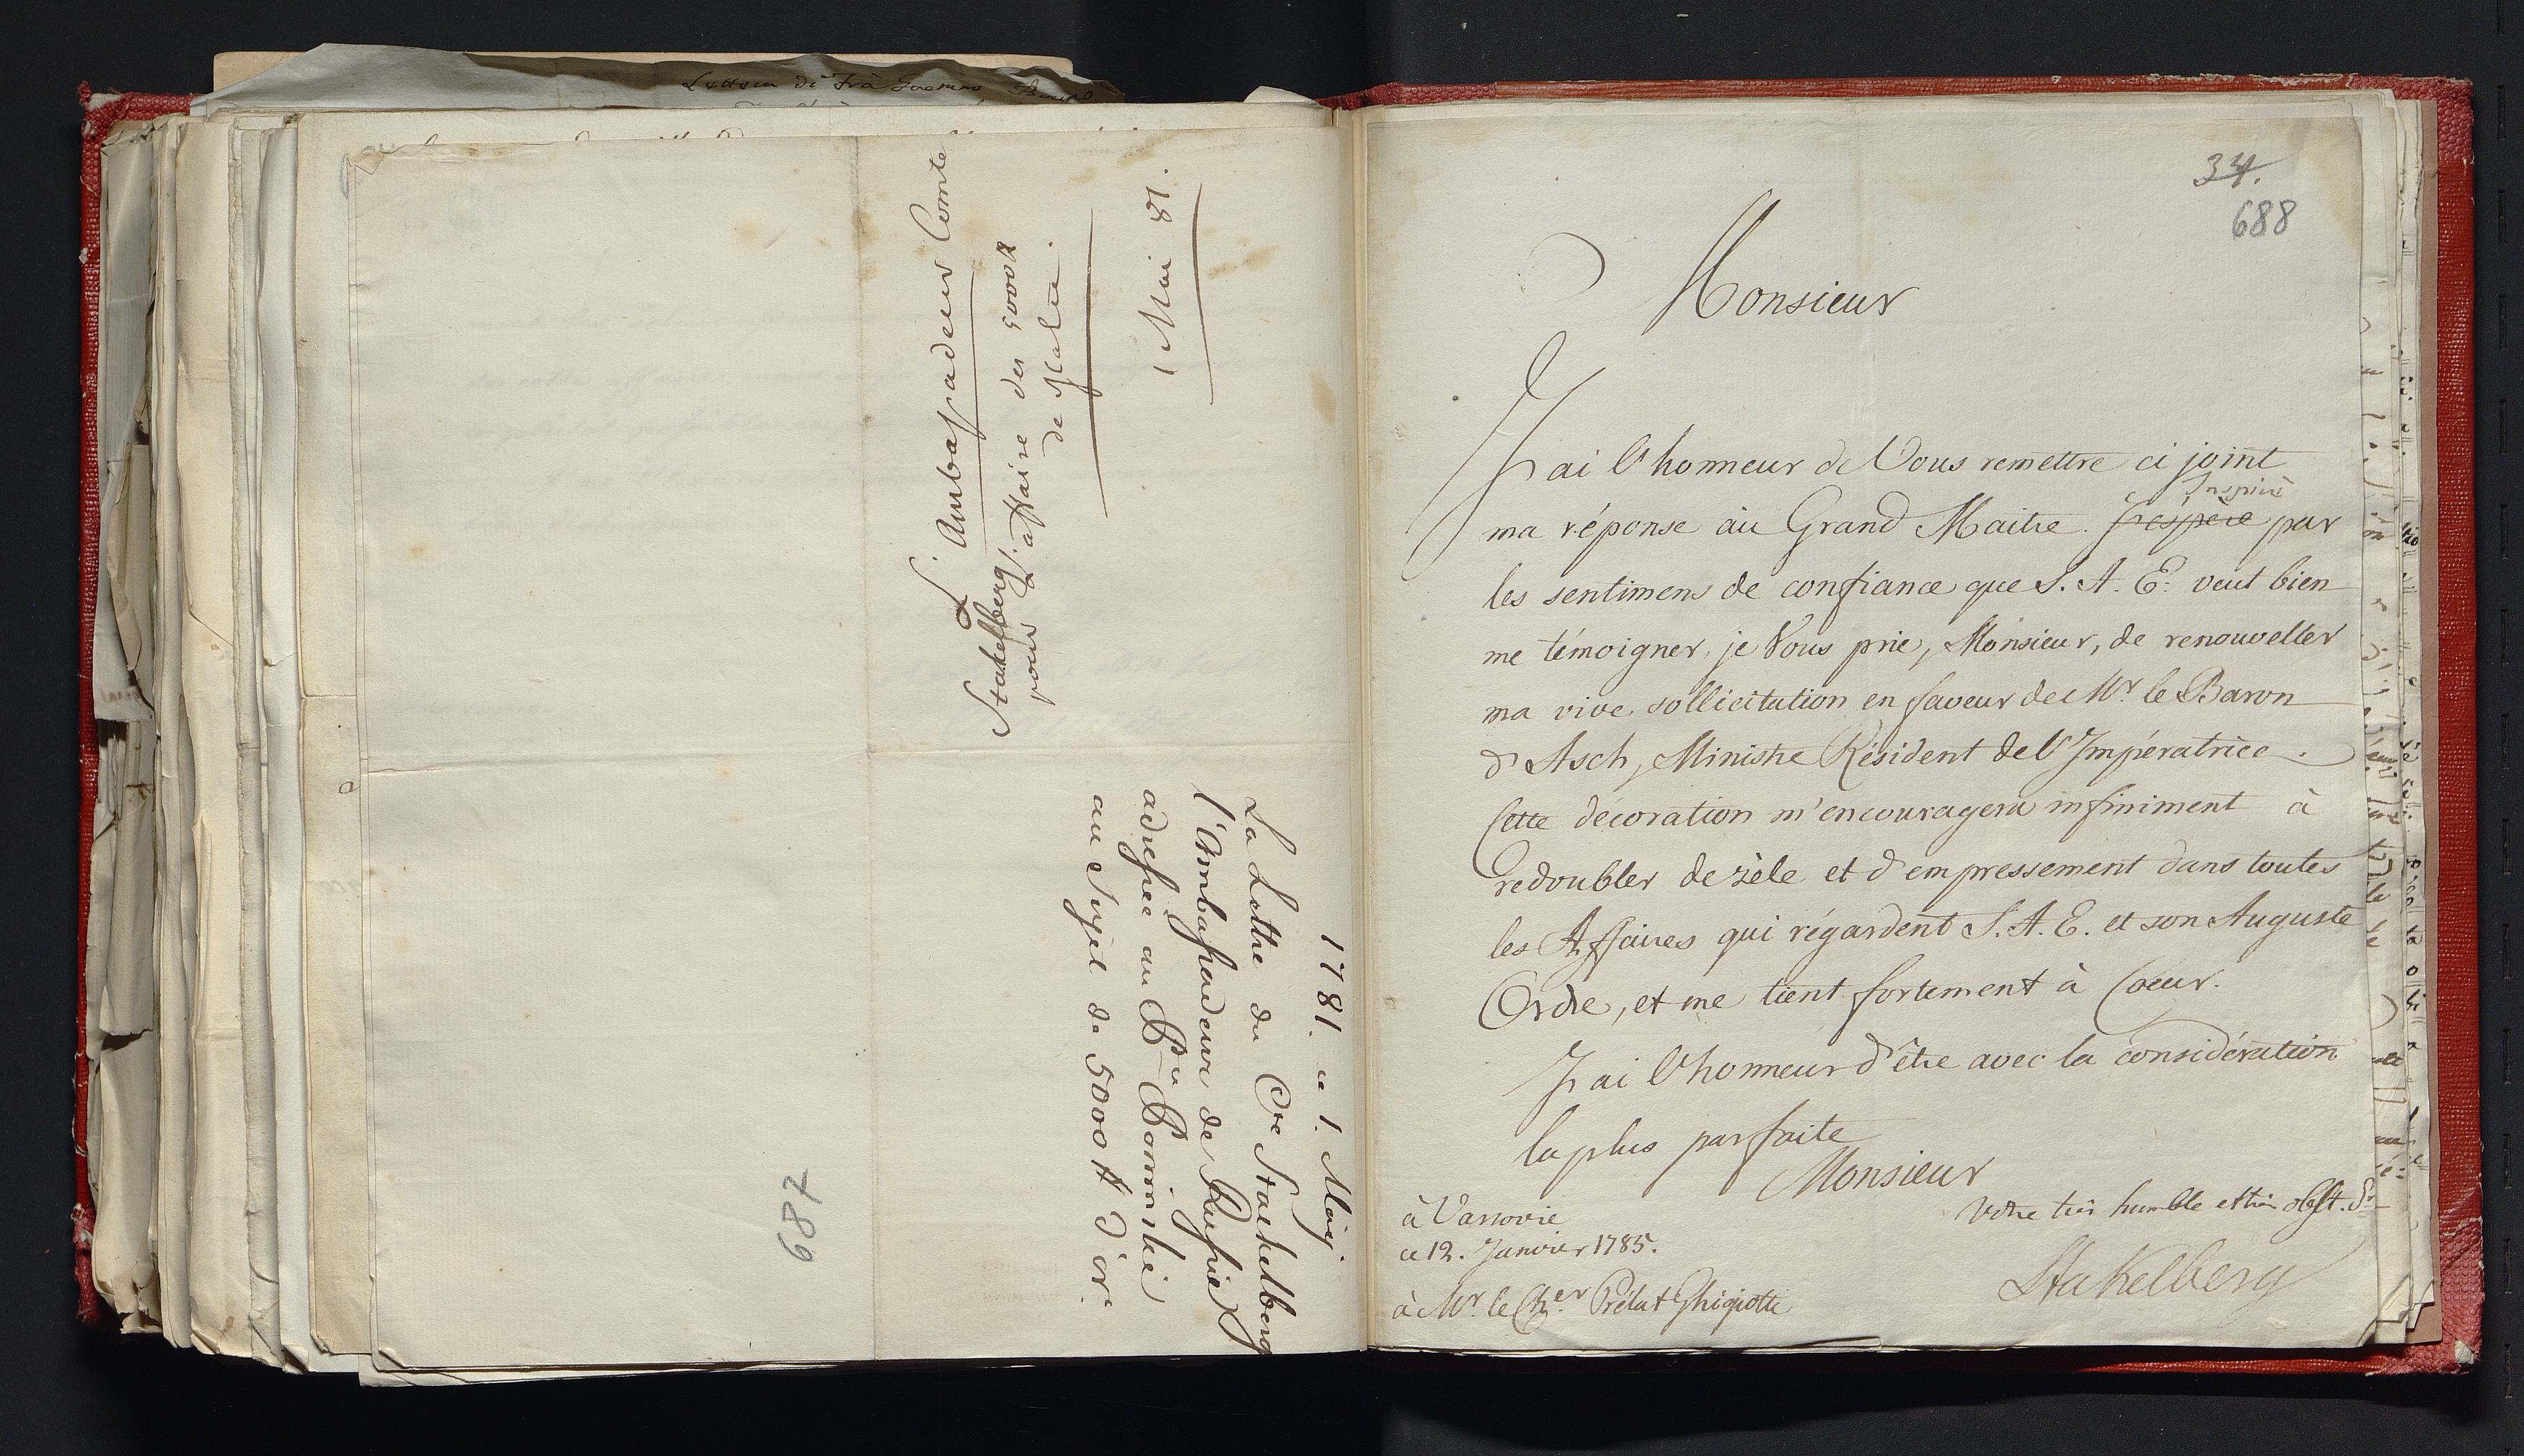 L'Ambassadeur Comte
Stakelberg
pour l'affaire des 5000 #
de Malte.
1 Mai 81.
1781. ce 1. Maij
La Lettre du Cte Stackelberg
l'Ambassadeur de Russie
adressée au Pce Poninski
au Sujet de 5000 # d'or
687
34.
688
Monsieur
J'ai l'honneur de Vous remettre ci joint
ma réponse au Grand Maitre. J'espère Inspiré par
les sentimens de confiance que S. A. E. veut bien
me témoigner, je Vous prie, Monsieur, de renouveller
ma vive sollicitation en faveur de Mr. le Baron
d'Asch, Ministre Résident de l'Impératrice.
Cette décoration m'encouragera infiniment à
redoubler de zèle et d'empressement dans toutes
les Affaires qui régardent S. A. E. et son Auguste
Ordre, et me tient fortement à Coeur.
J'ai l'honneur d'être avec la considération
la plus parfaite
Monsieur
à Varsovie
ce 12. Janvier 1785.
à Mr. le Cher. Prélat Ghigiotti
Votre très humble et très obst. Sr
Stakelberg